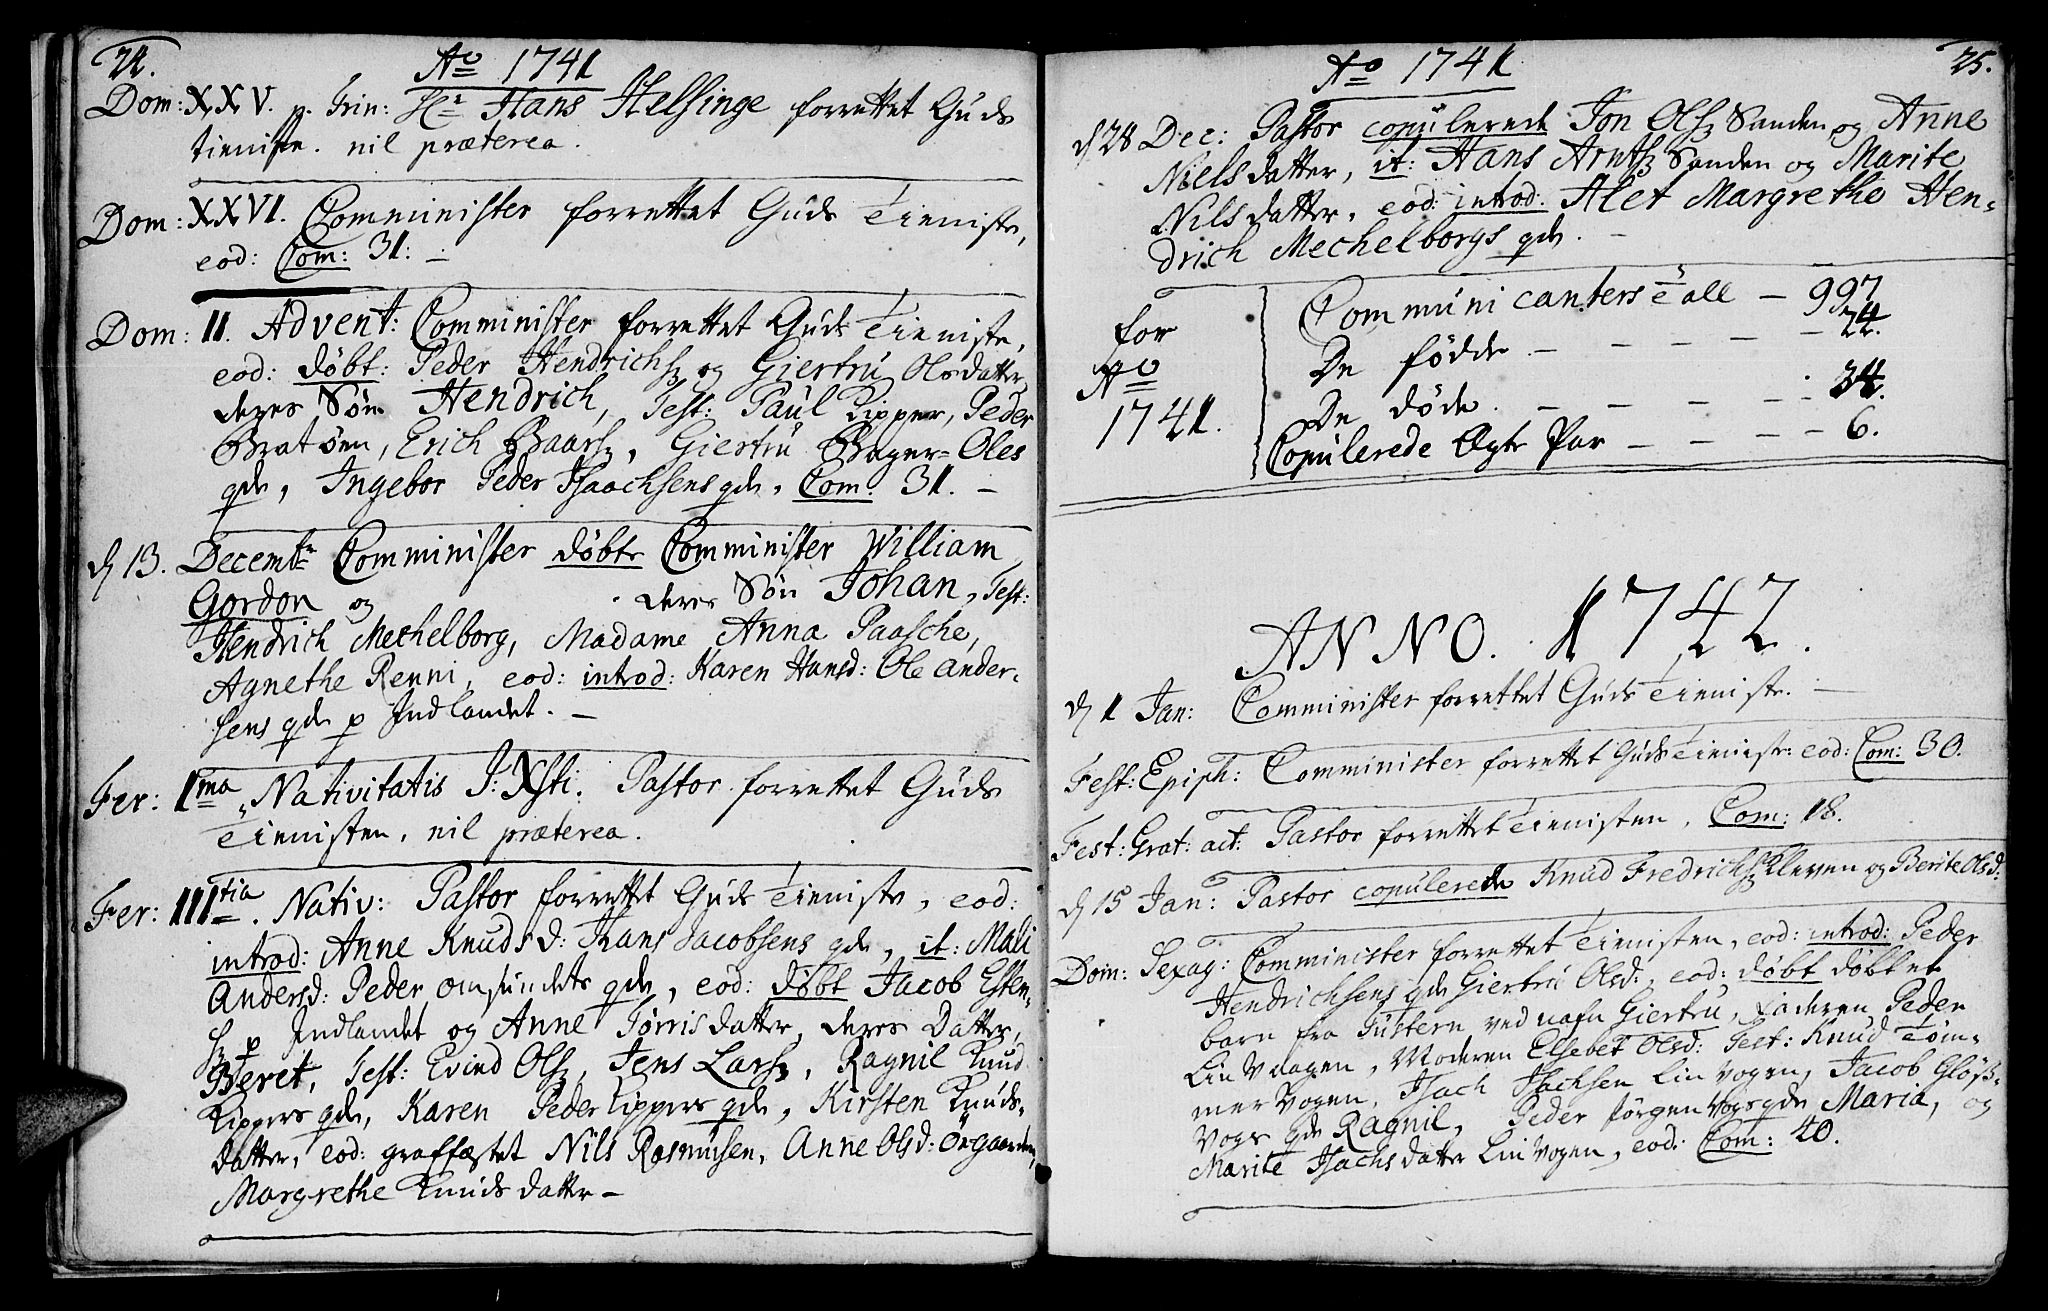 24.
Ao 1741
Dom: XXV. p. Trin: Hr Hans Helsinge forrettet Guds
tieniste. nil præterea.
Dom: XXVI. Comminister forrettet Guds Tieniste,
eod: Com: 31. –
Dom: II. Advent: Comminister forrettet Guds Tieniste,
eod: døbt: Peder Hendrichs. og Giertru Olsdatter
deres Søn Hendrich, Test: Paul Kipper, Peder
Bratøen, Erich Baars., Giertru Bager-Oles
qde, Ingebor Peder Isaachsens qde, Com: 31. –
d 13. Decembr Comminister døbte Comminister William
Gordon og deres Søn Johan, Test:
Hendrich Mechelborg, Madame Anna Paasche,
Agnethe Renni, eod: introd: Karen Hansd: Ole Ander-
sens qde p Indlandet. –
Fer: Ima Nativitatis J: Xsti. Pastor forrettet Guds
Tienisten, nil præterea.
Fer: IIItia. Nativ: Pastor forrettet Guds Tieniste, eod:
introd: Anne Knudsd: Hans Jacobsens qde, it: Mali
Andersd: Peder Omsundets qde, eod: døbt Jacob Esten-
s. p Indlandet og Anne Tørrisdatter, deres Datter,
Beret, Test: Evind Ols., Jens Lars., Ragnil Knud
Kippers qde, Karen Peder Kippers qde, Kirsten Knuds-
datter, eod: graffæstet Nils Rasmusen, Anne Olsd: Ørgaarden,
Margrethe Knudsdatter –
25.
Ao 1741
d 28 Dec: Pastor copulerede Jon Ols. Sanden og Anne
Nielsdatter, it: Hans Arnts. Sanden og Marite
Nilsdatter, eod: introd: Alet Margrethe Hen-
drich Mechelborgs qde. –
for Communicanters tall – 997
De fødde. – – – – – 24.
Ao
De døde. – – – – – 34.
1741.
Copulerede Egte Par – – – – 6.
ANNO. 1742.
d 1 Jan: Comminister forrettet Guds Tieniste. –
Fest: Epiph: Comminister forrettet Guds Tieniste eod: Com: 30.
Fest: Grat: act: Pastor forrettet Tienisten, Com: 18.
d 15 Jan: Pastor copulerede Knud Fredrichs. Kleven og Berite Olsd:
Dom: Sexag: Comminister forrettet Tienisten, eod: introd: Peder
Hendrichsens qde Giertru Olsd:, eod: døbt døbt et
barn fra Tustern ved nafn Giertru, Faderen Peder
Lin Vaagen, Moderen Elsebet Olsd: Test: Knud Tøm-
mer Vogen, Isach Isachsen Lin Vogen, Jacob Gløs-
Vogs qde Ragnil, Peder Jørgen Vogs qde Maria, og
Marite Isachsdatter Lin Vogen, eod: Com: 40.